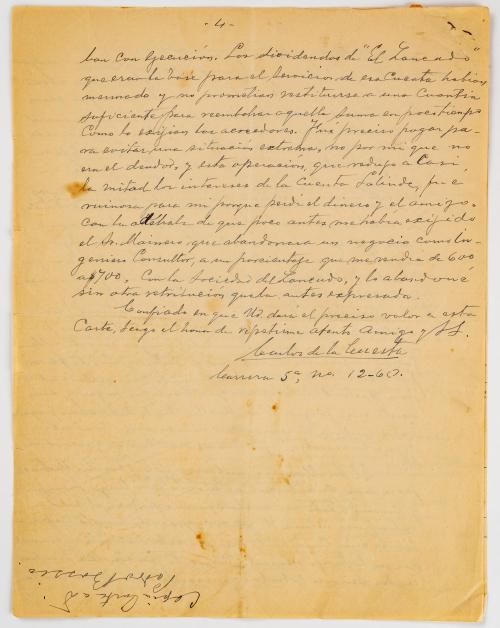 - 4 -
ban con ejecución. Los dividendos de "El Zancudo"
que eran la base para el servicio de esa cuenta habían
mermado y no prometían restituirse a una cuantía
suficiente para reembolsar aquella suma en poco tiempo
como lo exijían los acreedores. Fue preciso pagar pa-
ra evitar una situación extrema, no por mí que no
era el deudor, y esta operación, que redujo a casi
la mitad los intereses de la cuenta Lalinde, fue
ruinosa para mí porque perdí el dinero y el amigo.
Con la adehala de que poco antes me había exijido
el Sr. Mainero, que abandonara un negocio como In-
geniero Consultor, a un porcientaje que me rendía de 600
a $700. Con la Sociedad del Zancudo, y lo abandoné
sin otra retribución que la antes expresada.
Confiado en que Ud. dará el preciso valor a esta
Carta, tengo el honor de repetirme atento Amigo y SS.
Carlos de la Cuesta
Carrera 5ª, No. 12-60.
Copia Carta a D
Pedro